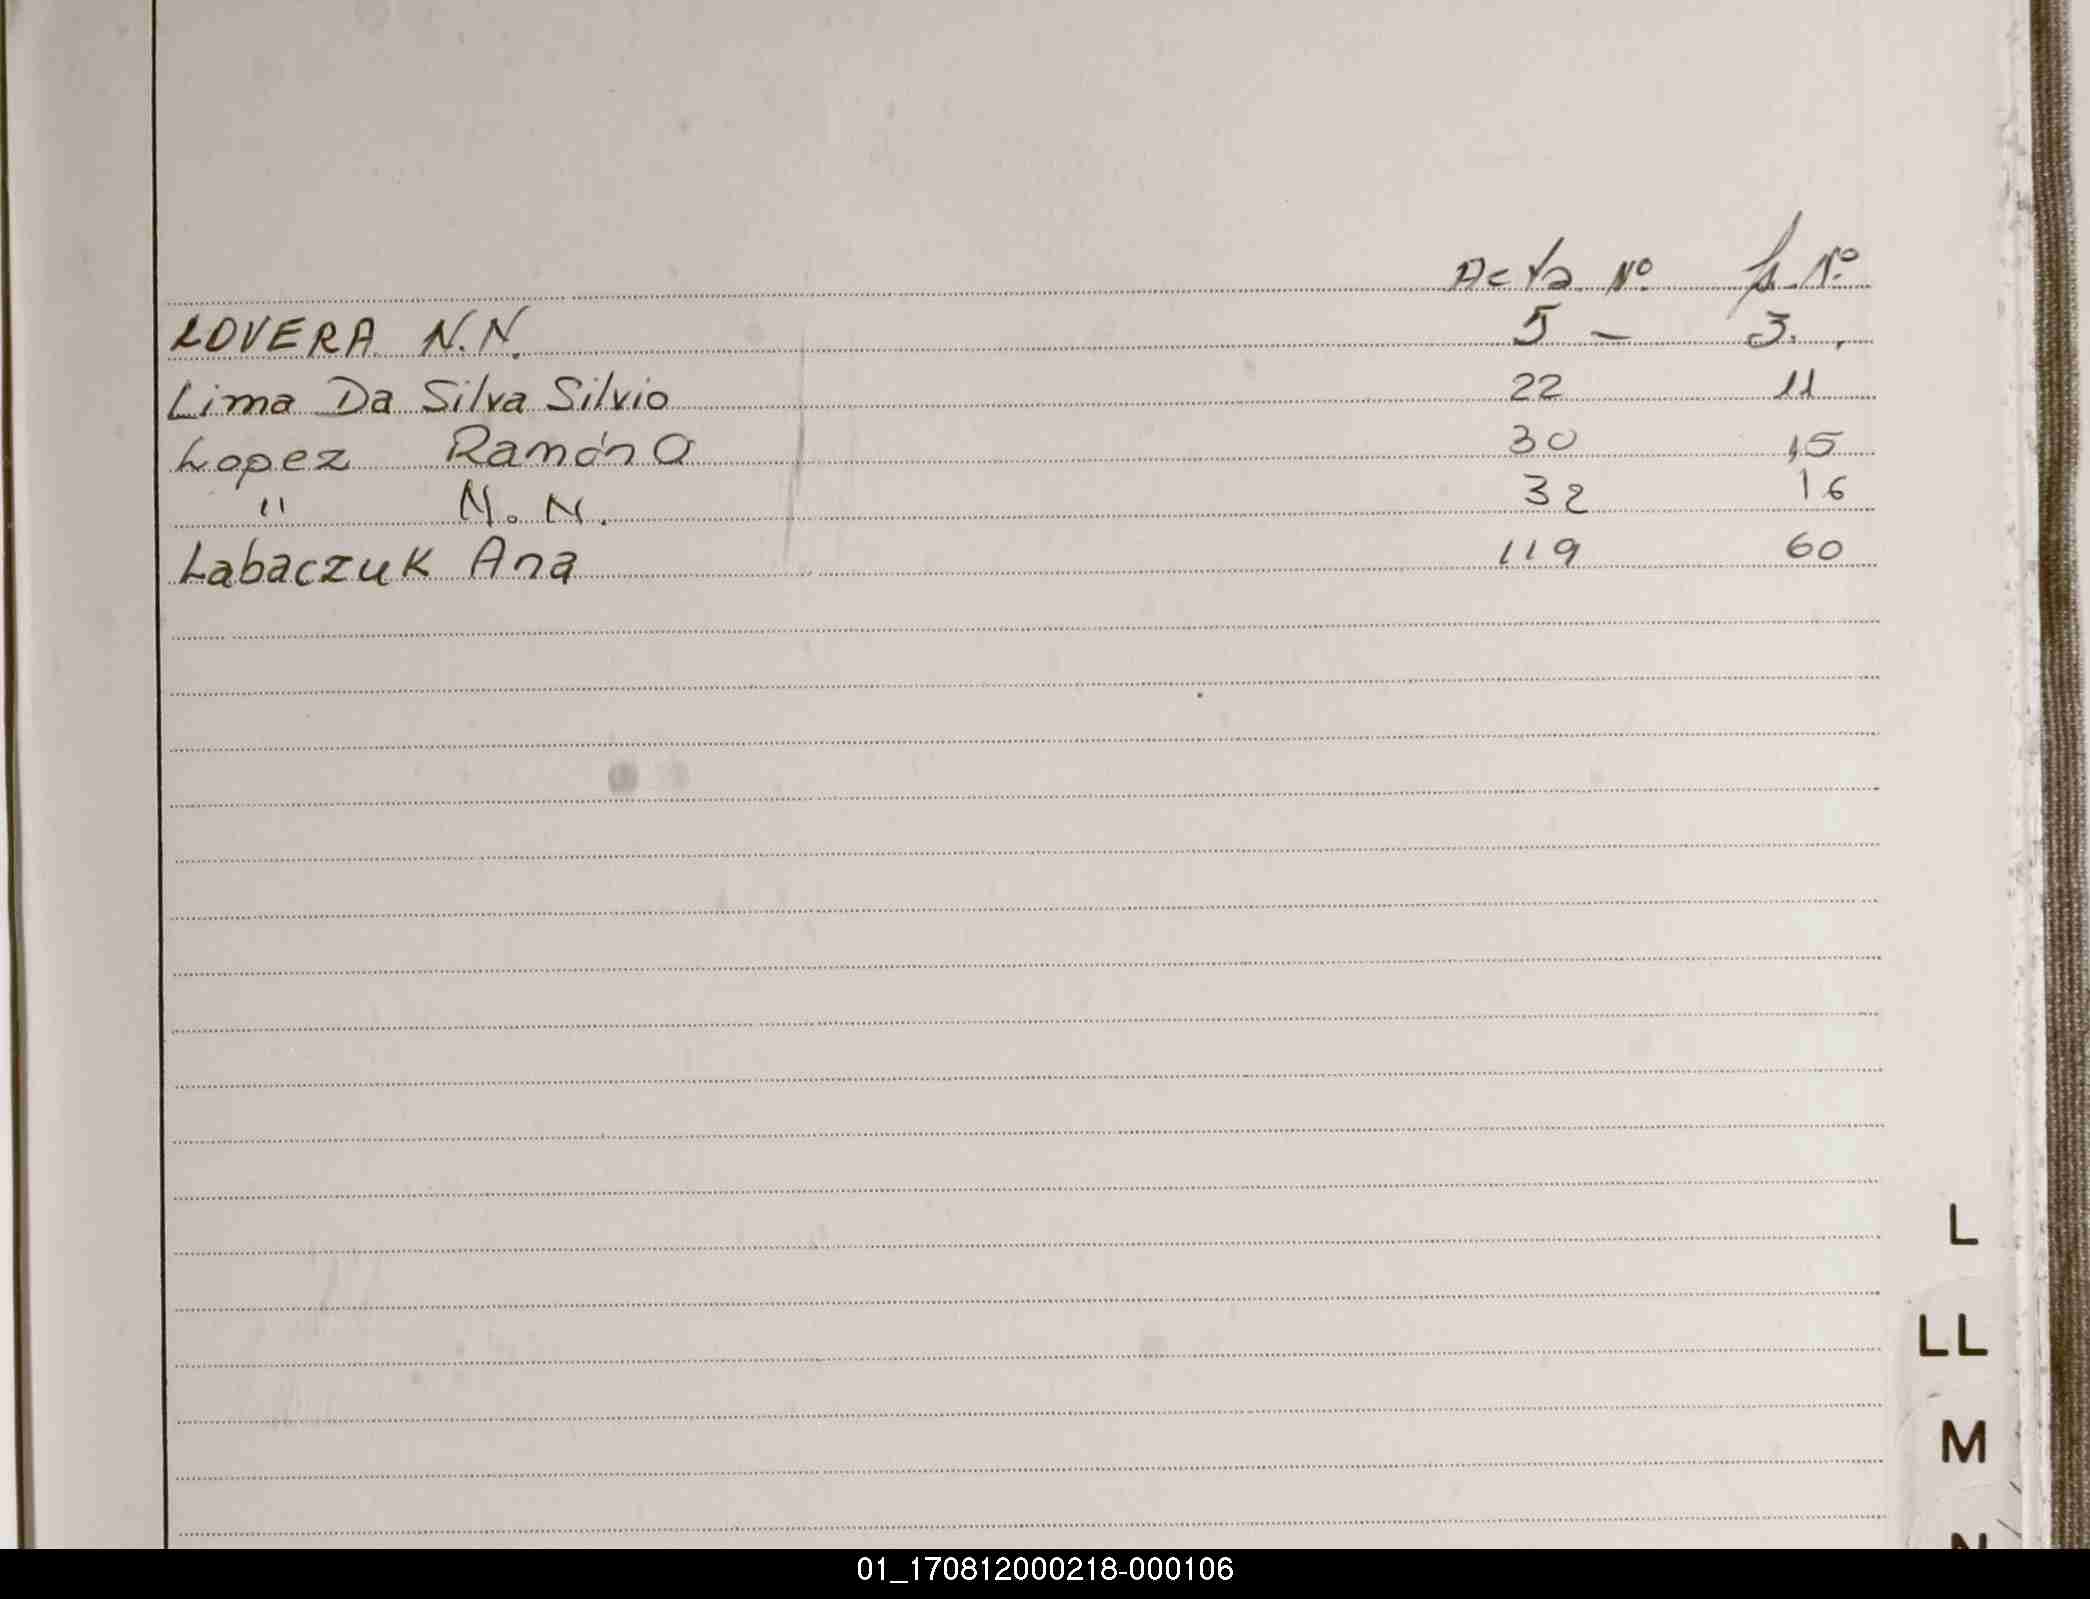 Acta Nº f. Nº
LOVERA N.N. 5 - 3.
Lima Da Silva Silvio 22 11
Lopez Ramón O 30 15
" N. N. 32 16
Labaczuk Ana 119 60
L
LL
M
N
01_170812000218-000106